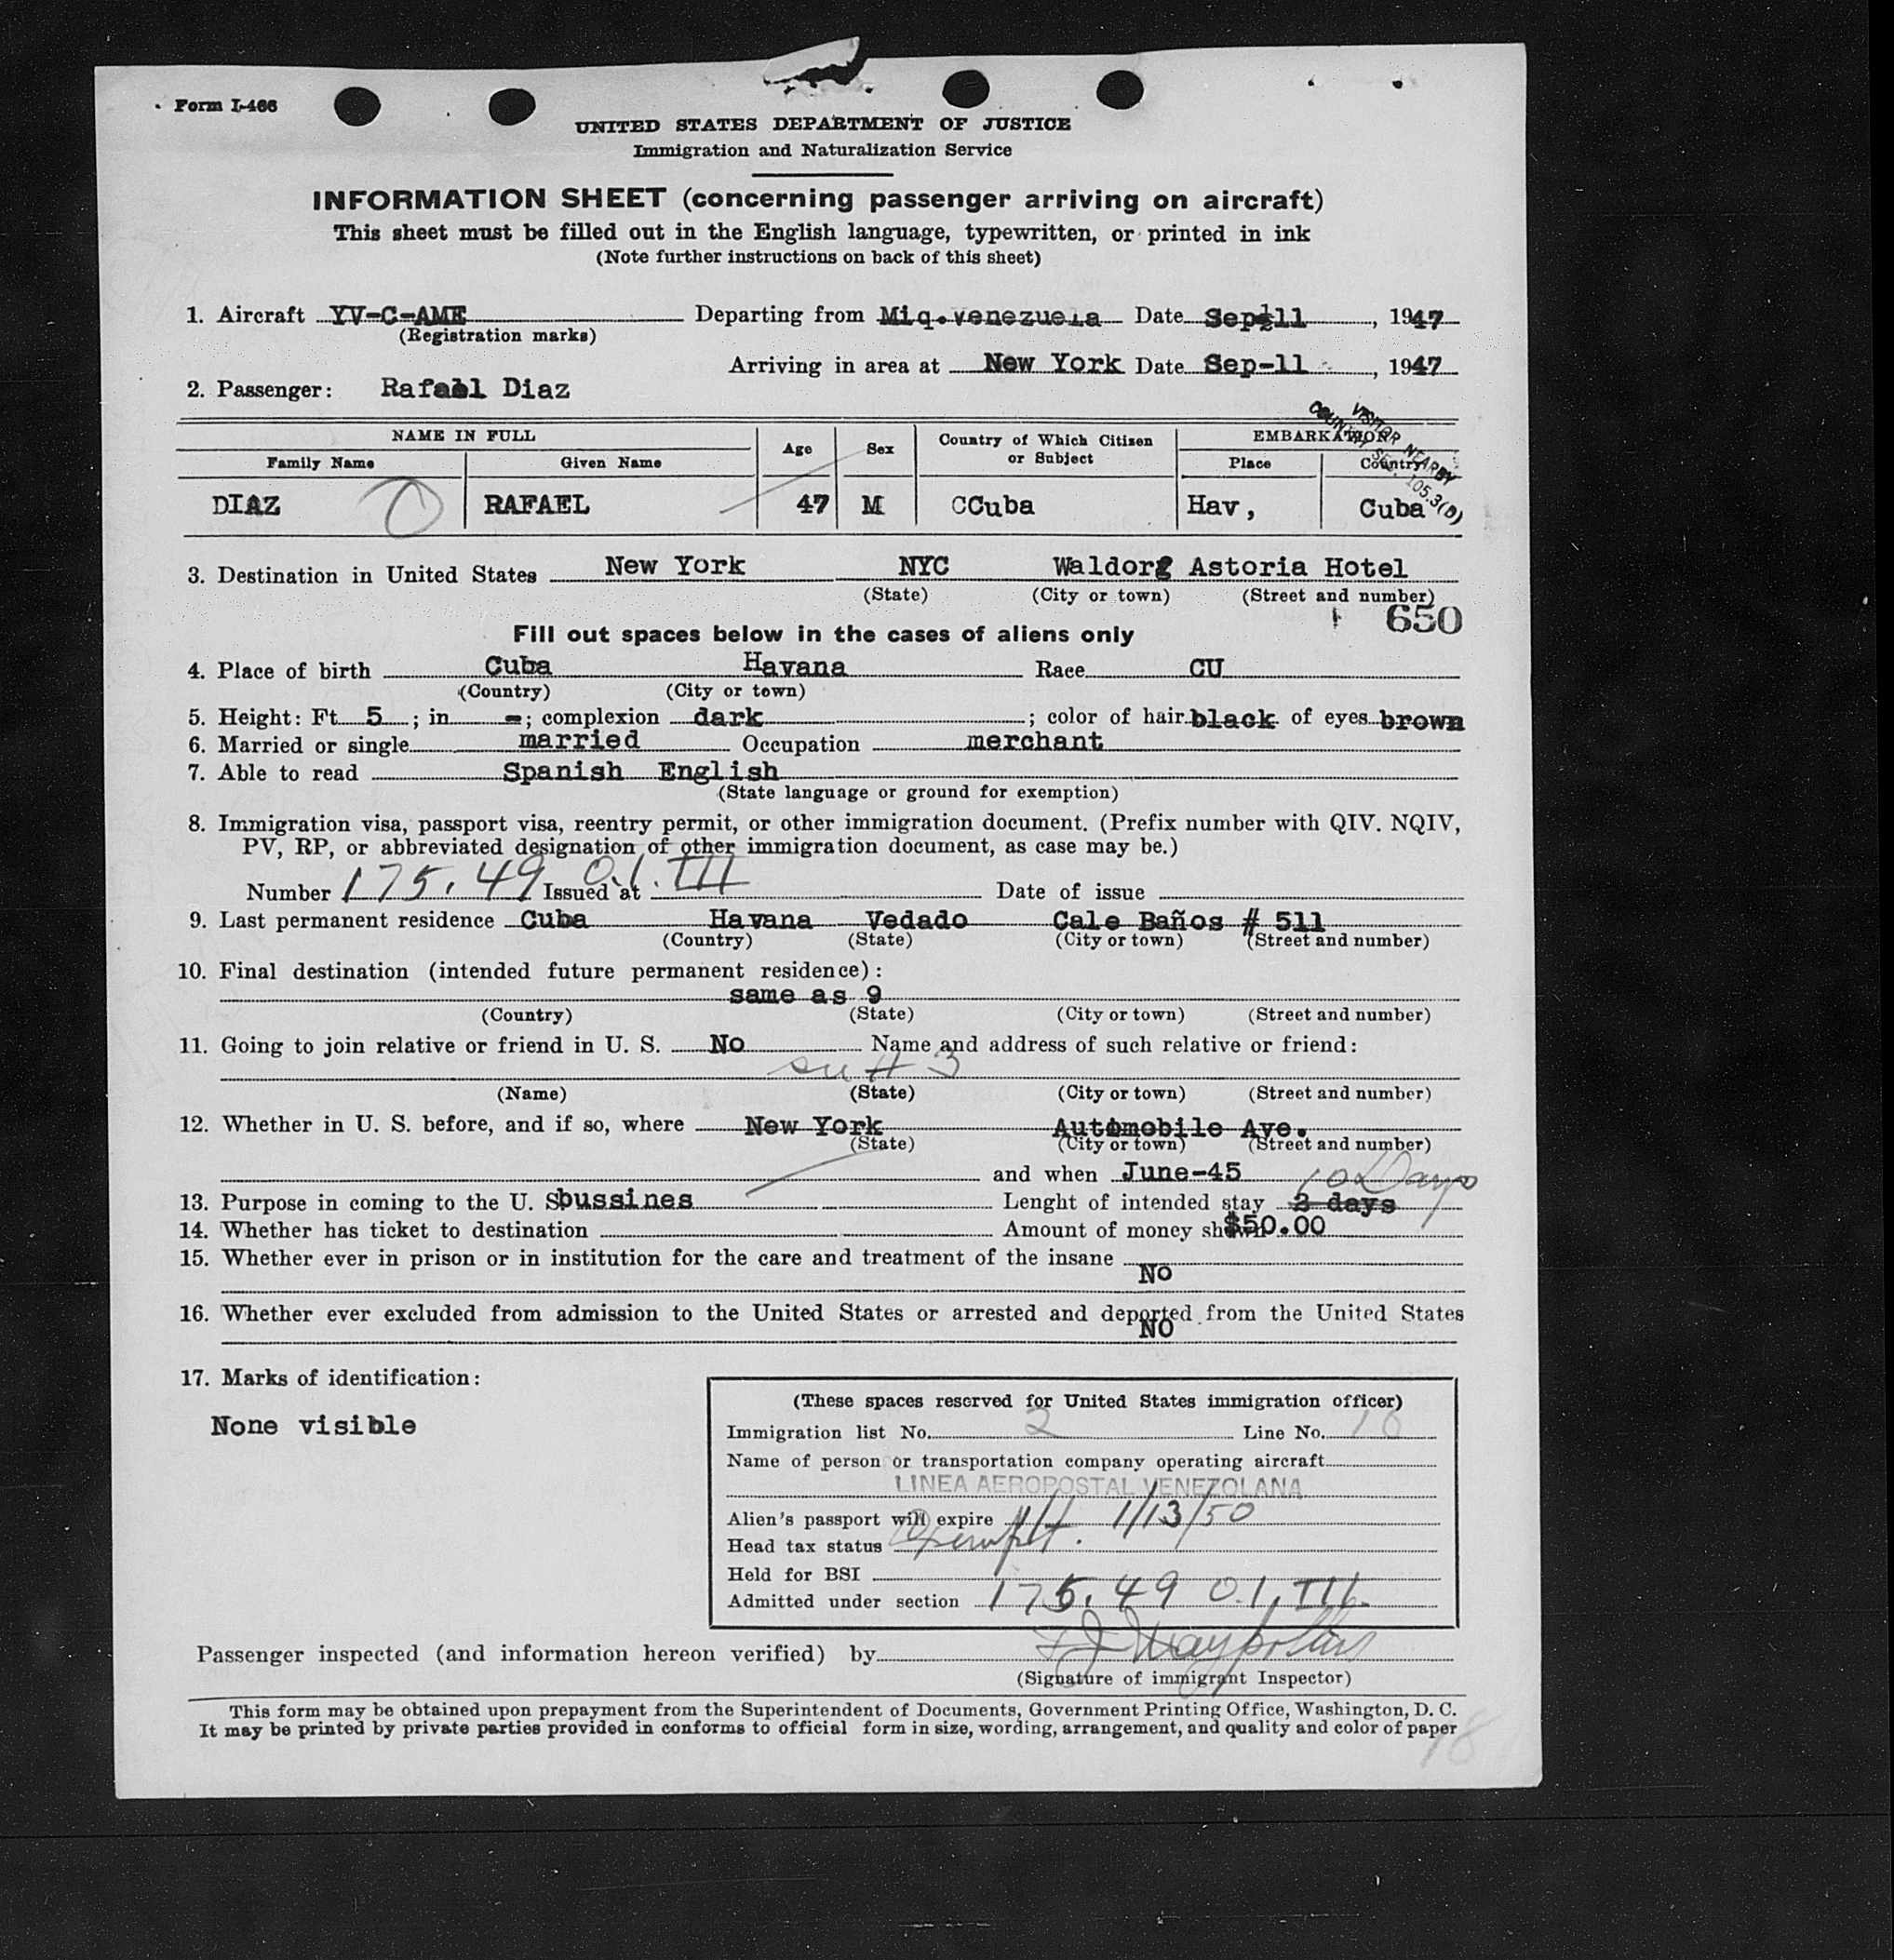 Form I-466
UNITED STATES DEPARTMENT OF JUSTICE
Immigration and Naturalization Service
INFORMATION SHEET (concerning passenger arriving on aircraft)
This sheet must be filled out in the English language, typewritten, or printed in ink
(Note further instructions on back of this sheet)
1. Aircraft YV-C-AME Departing from Miq.venezuela Date Sep-11, 1947
(Registration marks)
Arriving in area at New York Date Sep-11, 1947
2. Passenger: Rafael Diaz
VISITOR NEARBY
COUNTRY SEC. 105.3(B)
NAME IN FULL Age Sex Country of Which Citizen or Subject EMBARKATION
Family Name Given Name Place Country
DIAZ RAFAEL 47 M CCuba Hav, Cuba
3. Destination in United States New York NYC Waldorf Astoria Hotel
(State) (City or town) (Street and number)
650
Fill out spaces below in the cases of aliens only
4. Place of birth Cuba Havana Race CU
(Country) (City or town)
5. Height: Ft. 5; in -; complexion dark; color of hair black of eyes brown
6. Married or single married Occupation merchant
7. Able to read Spanish English
(State language or ground for exemption)
8. Immigration visa, passport visa, reentry permit, or other immigration document. (Prefix number with QIV. NQIV,
PV, RP, or abbreviated designation of other immigration document, as case may be.)
Number 175.49 O.I. III Issued at Date of issue
9. Last permanent residence Cuba Havana Vedado Cale Baños # 511
(Country) (State) (City or town) (Street and number)
10. Final destination (intended future permanent residence):
same as 9
(Country) (State) (City or town) (Street and number)
11. Going to join relative or friend in U. S. No Name and address of such relative or friend:
see # 3
(Name) (State) (City or town) (Street and number)
12. Whether in U. S. before, and if so, where New York Automobile Ave.
(State) (City or town) (Street and number)
and when June-45
10 Days
13. Purpose in coming to the U. S. bussines Lenght of intended stay 2 days
14. Whether has ticket to destination Amount of money shown $50.00
15. Whether ever in prison or in institution for the care and treatment of the insane
No
16. Whether ever excluded from admission to the United States or arrested and deported from the United States
NO
17. Marks of identification:
None visible
(These spaces reserved for United States immigration officer)
Immigration list No. 2 Line No. 10
Name of person or transportation company operating aircraft
LINEA AEROPOSTAL VENEZOLANA
Alien's passport will expire 1/13/50
Head tax status Exempt.
Held for BSI
Admitted under section 175.49 O.I. III.
Passenger inspected (and information hereon verified) by
(Signature of immigrant Inspector)
This form may be obtained upon prepayment from the Superintendent of Documents, Government Printing Office, Washington, D. C.
It may be printed by private parties provided in conforms to official form in size, wording, arrangement, and quality and color of paper
18